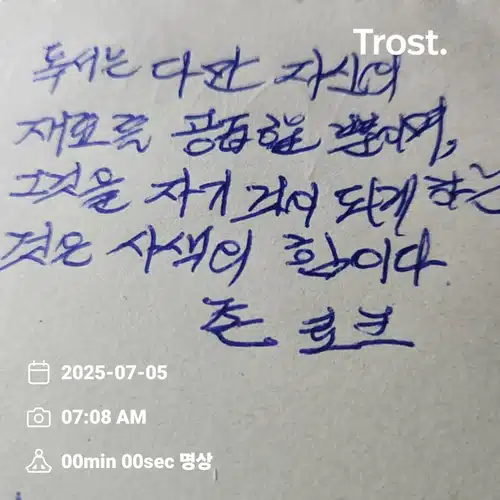 Trost.
독서는 다만 지식의
재료를 공급할 뿐이며,
그것을 자기 것이 되게 하는
것은 사색의 힘이다
존 로크
2025-07-05
07:08 AM
00min 00sec 명상